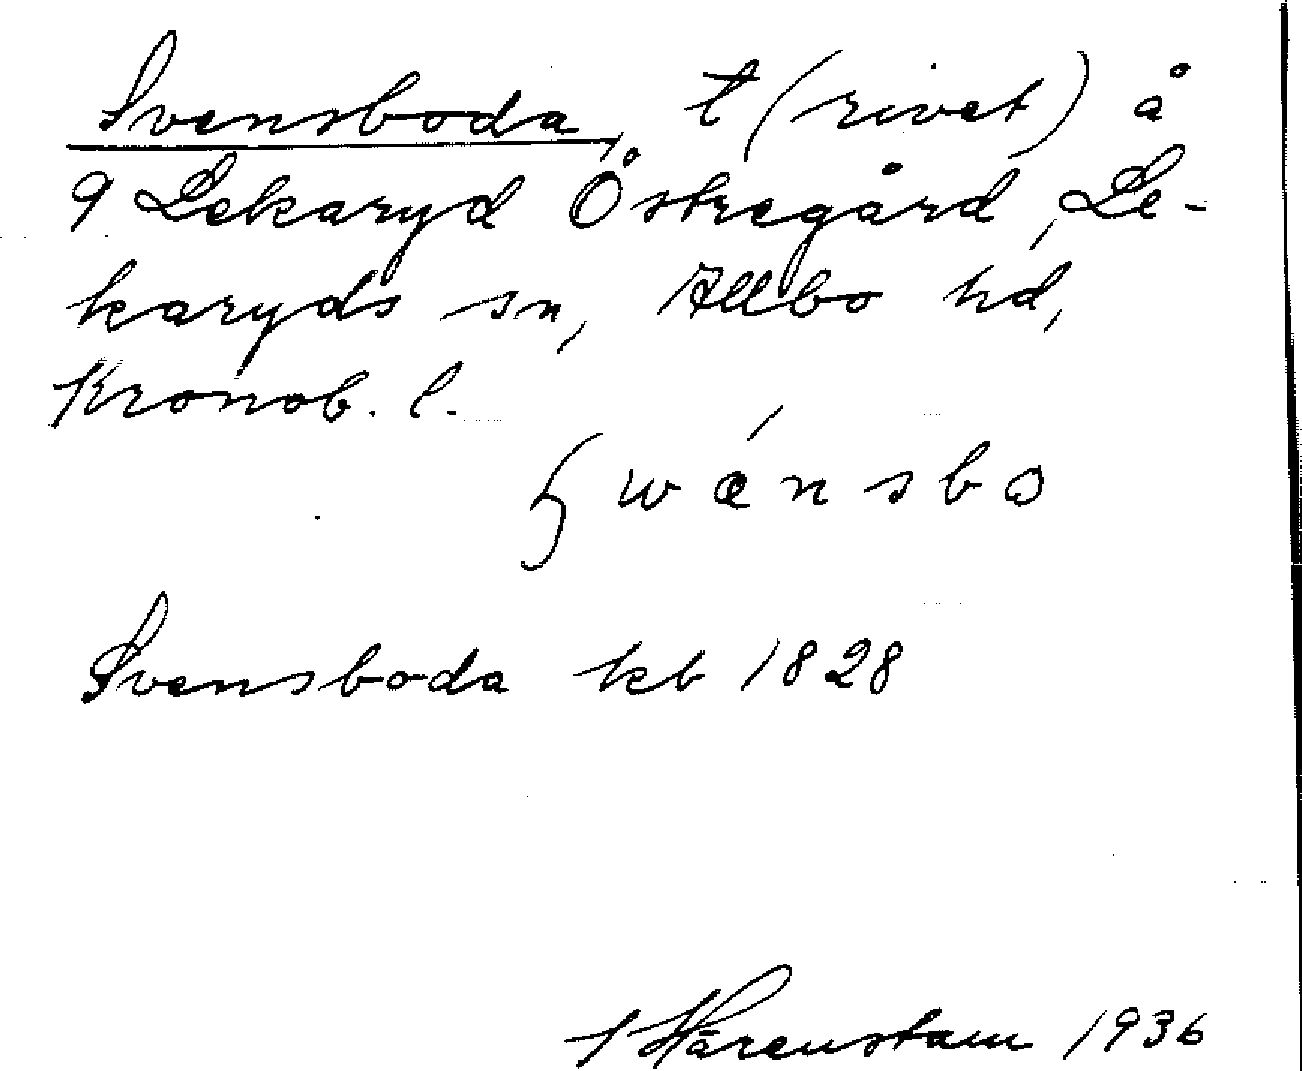 Svensboda, t (rivet) å
9 Lekaryd Östregård, Le-
karyds sn, Allbo hd,
Kronob. l.
Svensboda kb 1828
Härenstam 1936